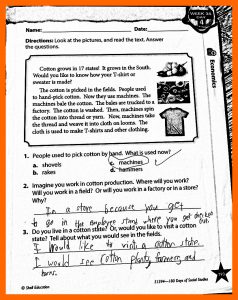 WEEK 14
Name: Date:
Directions: Look at the pictures, and read the text. Answer
the questions.
Cotton grows in 17 states! It grows in the South.
Would you like to know how your T-shirt or
sweater is made?
The cotton is picked in the fields. People used
to hand-pick cotton. Now they use machines. The
machines bale the cotton. The bales are trucked to a
factory. The cotton is washed. Then, machines spin
the cotton into thread or yarn. Now, machines take
the thread and weave it into cloth on looms. The
cloth is used to make T-shirts and other clothing.
Economics
1. People used to pick cotton by hand. What is used now?
a. shovels c. machines
b. rakes d. hammers
2. Imagine you work in cotton production. Where will you work?
Will you work in a field? Or will you work in a factory or in a store?
Why?
In a store because you get
to go in the employee stand where you get
3. Do you live in a cotton state? Or, would you like to visit a cotton
state? Tell about what you would see in the fields.
I Would like to visit a cotton state.
I would see cotton plants, farmers, and
barns.
© Shell Education 180 Days of Social Studies